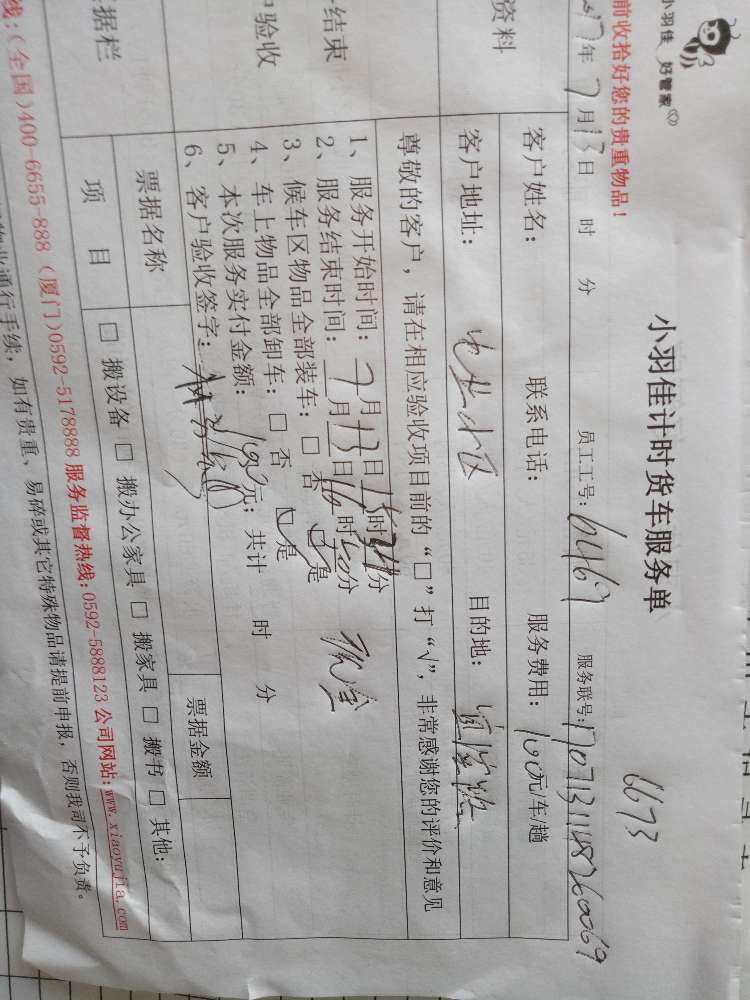 小羽佳 好管家
小羽佳计时货车服务单
6673
前收拾好您的贵重物品！
17年7月13日 时 分 员工工号：6467 服务联号：170713114826069
资料
客户姓名： 联系电话： 服务费用：100元/车/趟
客户地址： 小区 目的地：
尊敬的客户，请在相应验收项目前的“□”打“√”，非常感谢您的评价和意见
结束
验收
1、服务开始时间：7月13日15时24分
2、服务结束时间：7月13日16时50分
3、候车区物品全部装车：□ 否 ☑ 是
4、车上物品全部卸车：□ 否 ☑ 是
5、本次服务实付金额：100元；共计 时 分
6、客户验收签字：
据栏
票据名称 票据金额
项 目 □ 搬设备 □ 搬办公家具 □ 搬家具 □ 搬书 □ 其他：
线：（全国）400-6655-888（厦门）0592-5178888 服务监督热线：0592-5888123 公司网站：www.xiaoyujia.com
物业通行手续，如有贵重、易碎或其它特殊物品请提前申报，否则我司不予负责。